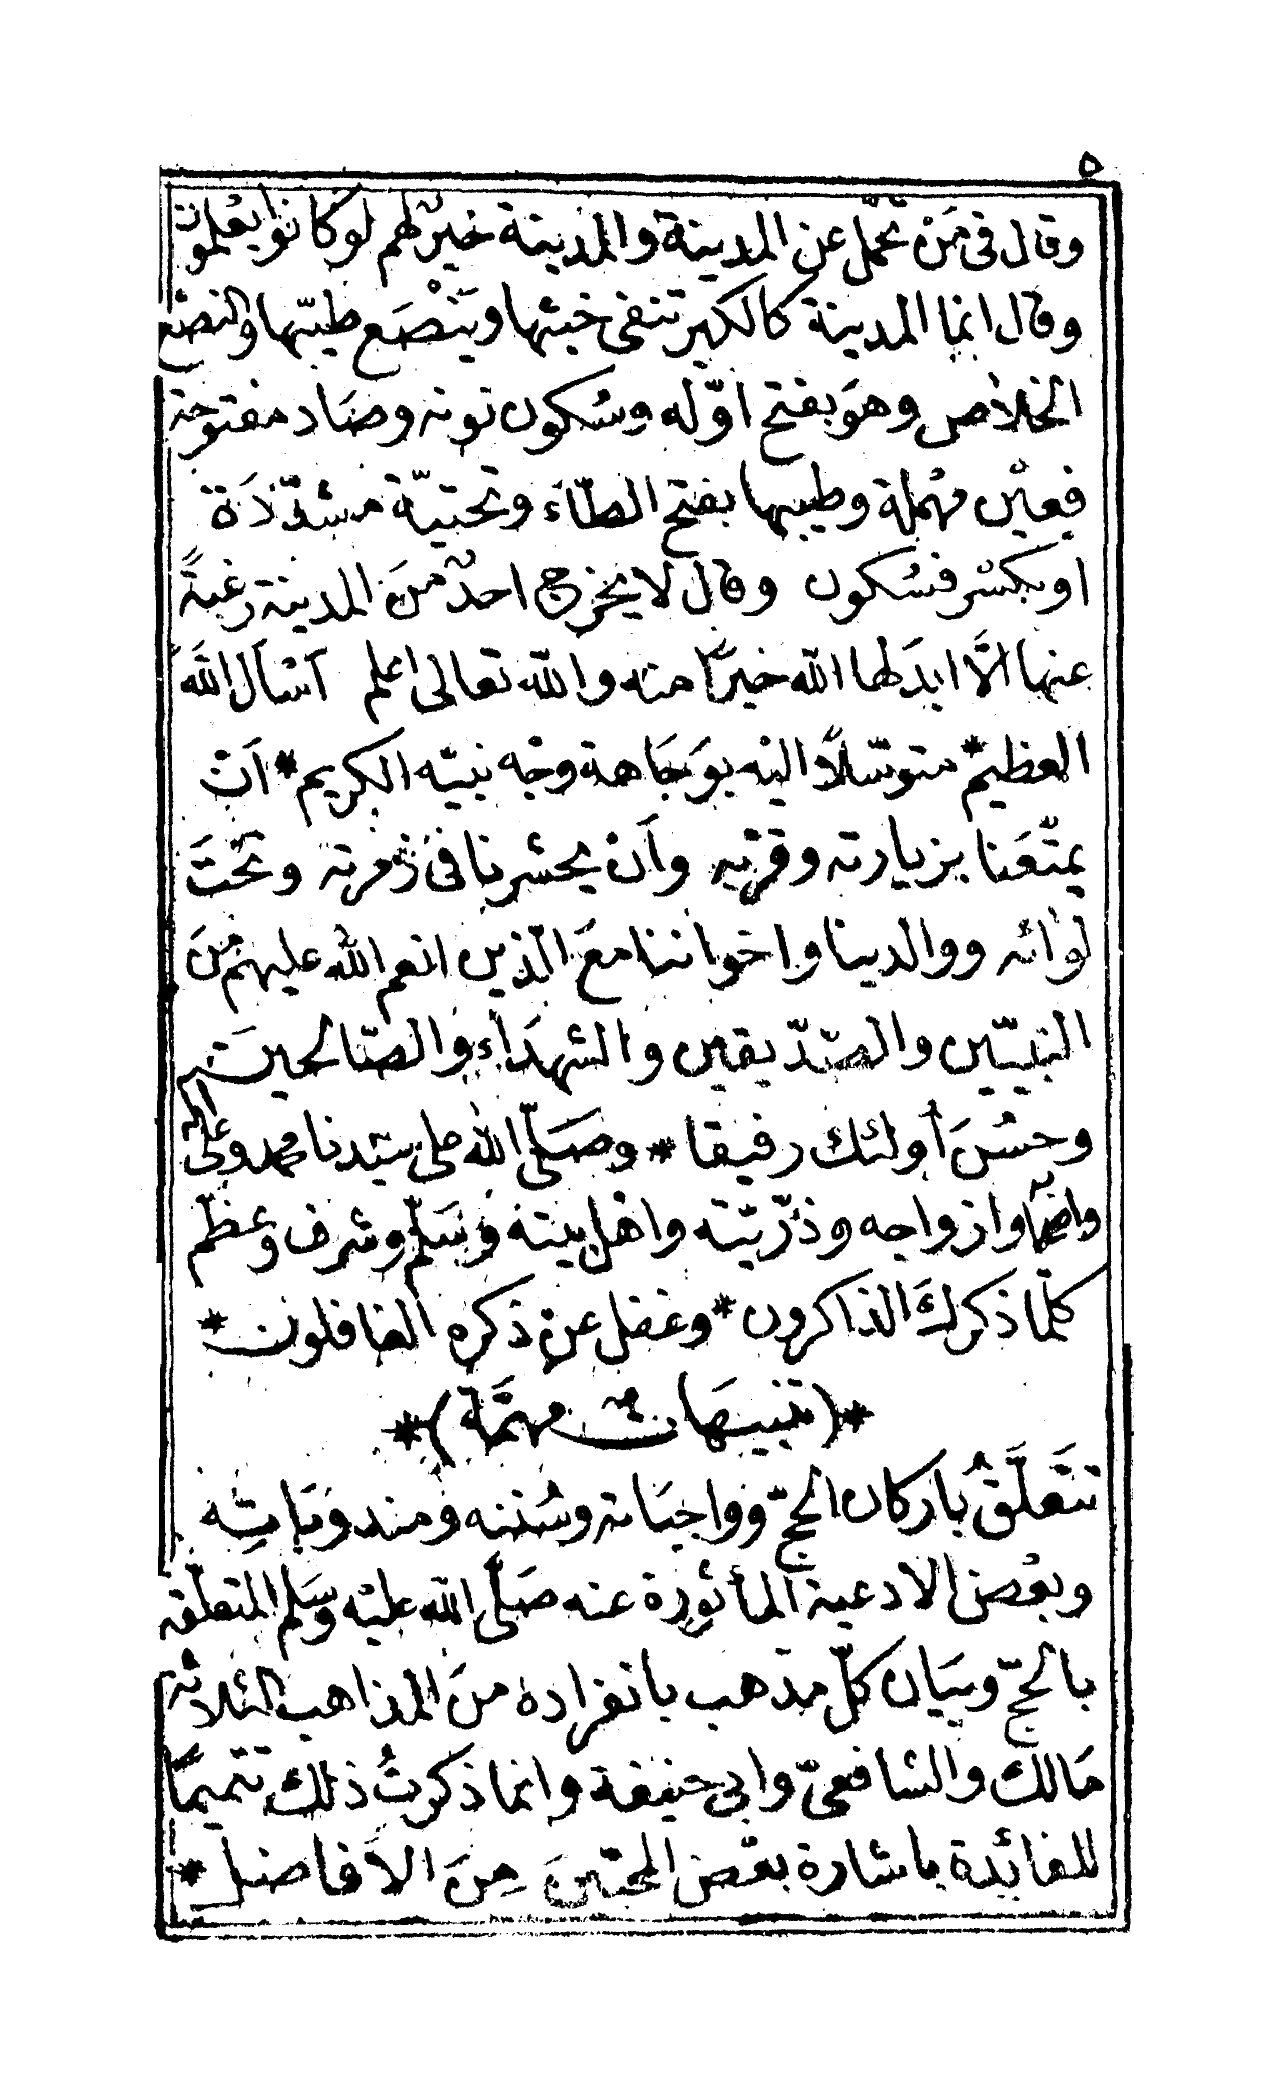 ٥
وقال فى مَنْ تحمّل عن المدينة والمدينة خيرٌ لهم لو كانوا يعْلمون
وقال انما المدينة كالكير تنفى خبثها ويَنْصَع طيّبها والنصْع
الخلاص وهوَ بفتح اوّله وسُكون نونه وصَاد مفتوحة
فعيْن مهْملة وطيبها بفتح الطّاء وتحتيّة مشدّدَة
او بكسْر فسُكون وقال لا يخرج احدٌ منَ المدينة رغبةً
عنها الّا ابدَلها الله خيرًا منه والله تعالى اعلم آسْأل اللهَ
العظيم * متوسّلاً اليْه بوَجَاهة وجْه نبيّه الكريم * اَنْ
يمتّعَنا بزيارته وقرْبه واَنْ يحشرنا فى زمرته وتحْتَ
لوائه ووالدينا واخواننا معَ الّذين انعم الله عليهم منَ
النبيّين والصّدّيقين والشهدَاء والصّالحينَ
وحسُنَ أولئك رفيقا * وصَلّى الله على سيّدنا محمد وعلى اله
واصحابه وازواجه وذرّيّته واهْل بيته وسَلّم وشرف وعظّم
كلّما ذكركَ الذاكرون * وغفل عن ذكره الغافلون *
*(تنبيهَاتٌ مهمّة)*
تتَعلَّقُ باركان الحجّ وواجبَاته وسُننه ومندوبَاته
وبعْض الادعية المأثورة عنه صَلّى الله عليْه وسَلم المتعلّقة
بالحجّ وبيَان كلّ مذهب بانفراده منَ المذاهب الثلاثة
مَالك والشافعىّ وابى حنيفة وانما ذكرتُ ذلك تتميمًا
للفائدة باشارة بعْض المحبّينَ مِنَ الاَفاضل *